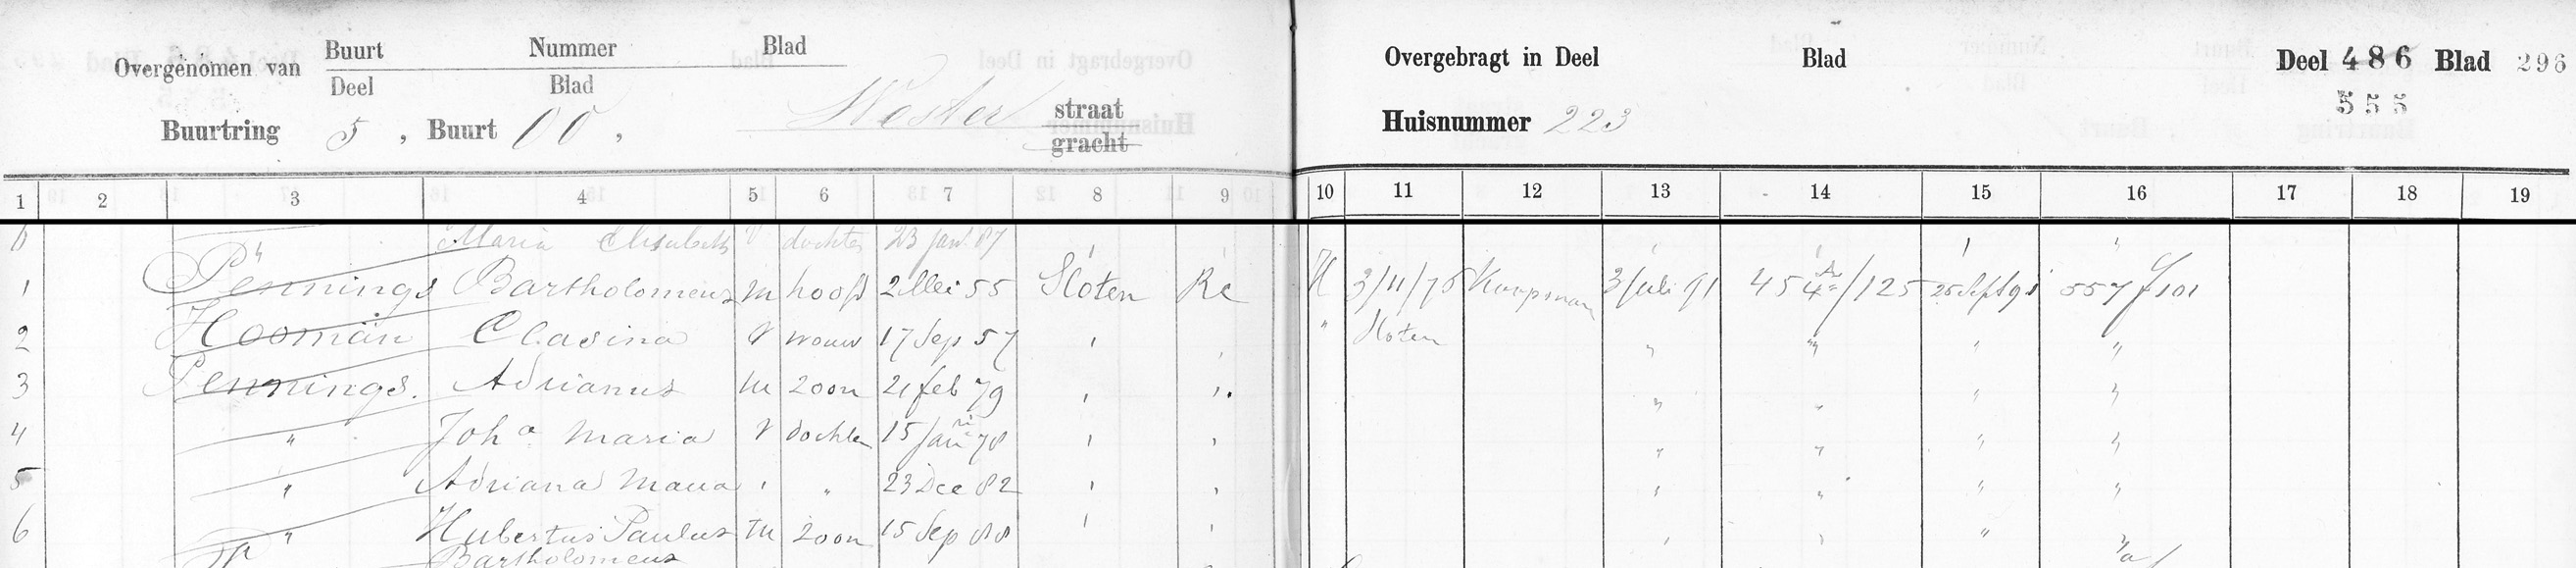 Overgenomen van Buurt Nummer Blad
Deel Blad
Buurtring 5, Buurt OO, Wester straat
gracht
Overgebragt in Deel Blad Deel 486 Blad 296
555
Huisnummer 223
1 2 3 4 5 6 7 8 9 10 11 12 13 14 15 16 17 18 19
Maria Elisabeth V dochter 23 Jan. 87
1 Pennings Bartholomeus M hoofd 2 Mei 55 Sloten RC H 3/11/76 Koopman 3 Juli 91 45 /125 25 Sept 91 557 f 101
2 Hooman Clasina V vrouw 17 Sep 57 " " " Sloten " " " "
3 Pennings. Adrianus M zoon 21 feb 79 " " " " " "
4 " Joha Maria V dochter 15 Jan 78 " " " " " "
5 " Adriana Maria " " 23 Dec 82 " " " " " "
6 " Hubertus Paulus M zoon 15 Sep 88 " " " " "
Bartholomeus